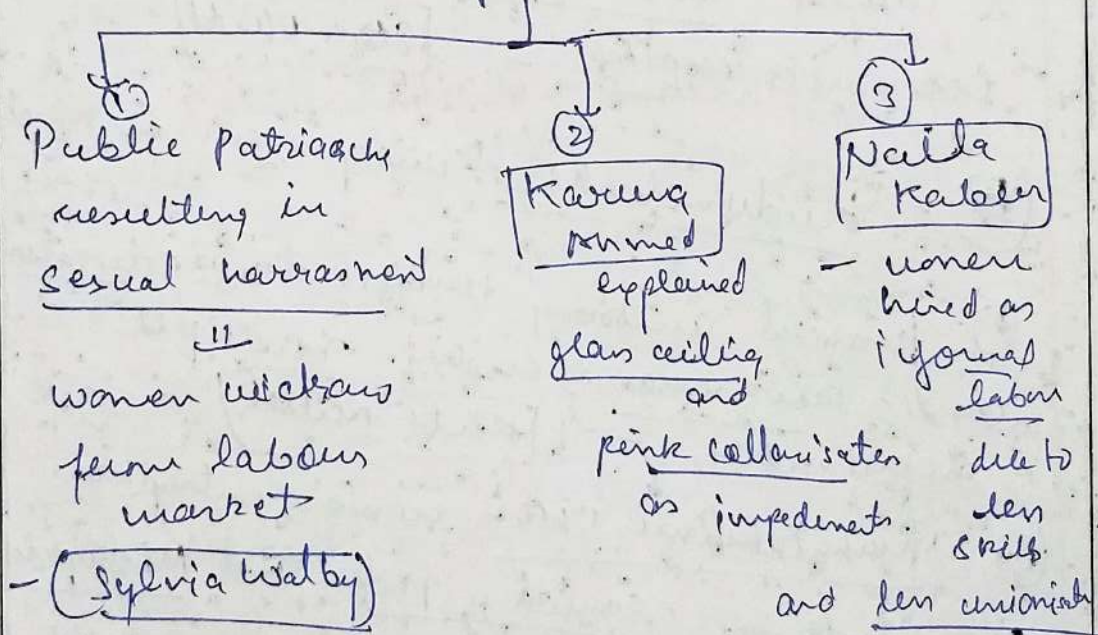 ①
Public Patriarchy
resulting in
sexual harrasment
||
women withdraw
from labour
market
- Sylvia Walby
②
Karuna
Ahmed
explained
glass ceiling
and
pink collarisation
as impediments.
③
Naila
Kabeer
- women
hired as
informal
labour
due to
less
skills.
and less unionisation